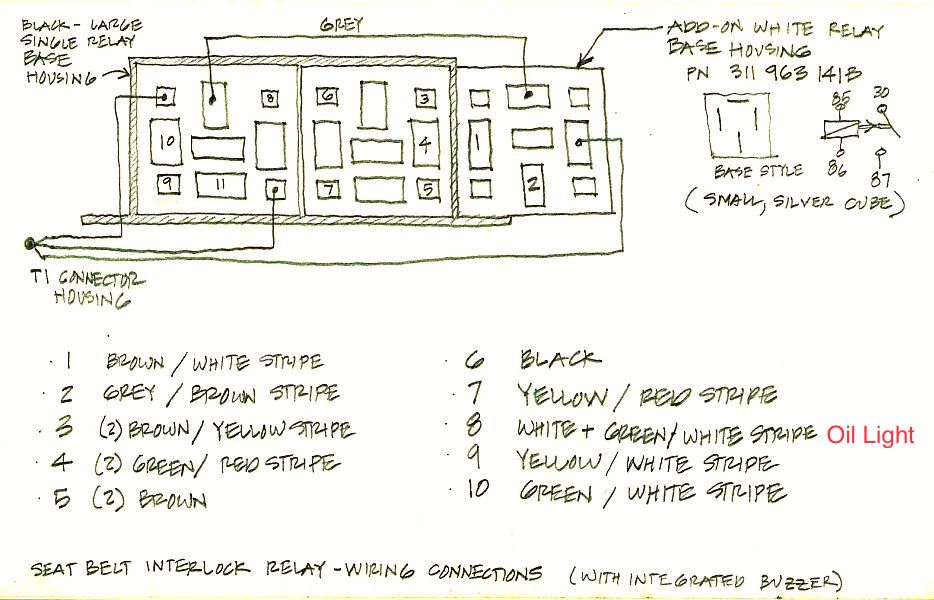 BLACK - LARGE
SINGLE RELAY
BASE
HOUSING
GREY
ADD-ON WHITE RELAY
BASE HOUSING
PN 311 963 141B
85 30
86 87
BASE STYLE
(SMALL, SILVER CUBE)
8 6 3
10 4 1
9 11 7 5 2
T1 CONNECTOR
HOUSING
· 1 BROWN / WHITE STRIPE
· 2 GREY / BROWN STRIPE
· 3 (2) BROWN / YELLOW STRIPE
· 4 (2) GREEN / RED STRIPE
· 5 (2) BROWN
· 6 BLACK
· 7 YELLOW / RED STRIPE
· 8 WHITE + GREEN / WHITE STRIPE Oil Light
· 9 YELLOW / WHITE STRIPE
· 10 GREEN / WHITE STRIPE
SEAT BELT INTERLOCK RELAY - WIRING CONNECTIONS (WITH INTEGRATED BUZZER)